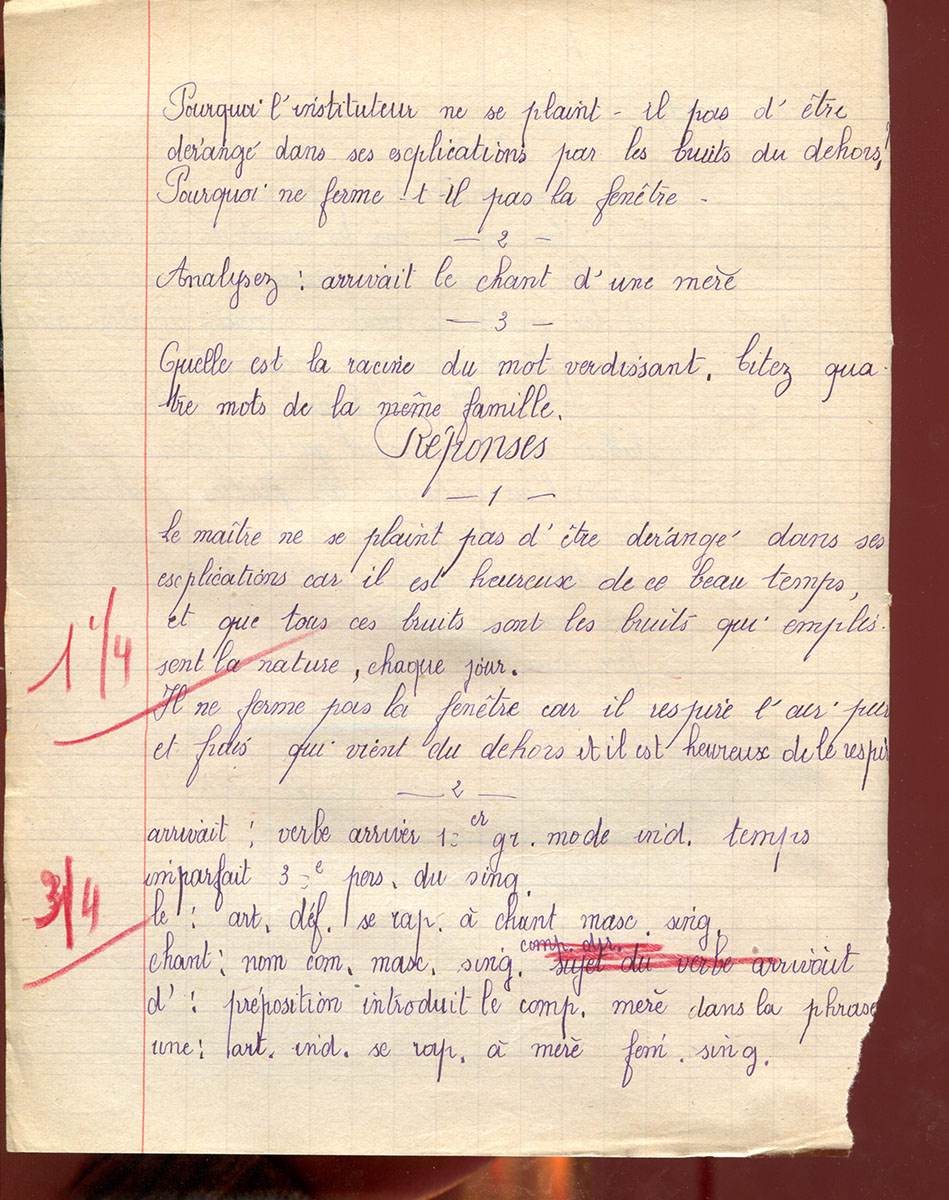 Pourquoi l'instituteur ne se plaint-il pas d'être
dérangé dans ses explications par les bruits du dehors,
Pourquoi ne ferme-t-il pas la fenêtre -
— 2 —
Analysez : arrivait le chant d'une mère
— 3 —
Quelle est la racine du mot verdissant. Citez qua-
tre mots de la même famille.
Réponses
— 1 —
le maître ne se plaint pas d'être dérangé dans ses
explications car il est heureux de ce beau temps,
et que tous ces bruits sont les bruits qui emplis-
1 1/4
sent la nature, chaque jour.
Il ne ferme pas la fenêtre car il respire l'air pur
et frais qui vient du dehors et il est heureux de le respir
— 2 —
arrivait : verbe arriver 1er gr. mode ind. temps
imparfait 3e pers. du sing.
3/4
le : art. déf. se rap. à chant masc. sing.
comp. dir.
chant : nom com. masc. sing. sujet du verbe arrivait
d' : préposition introduit le comp. mère dans la phrase
une : art. ind. se rap. à mère fem. sing.